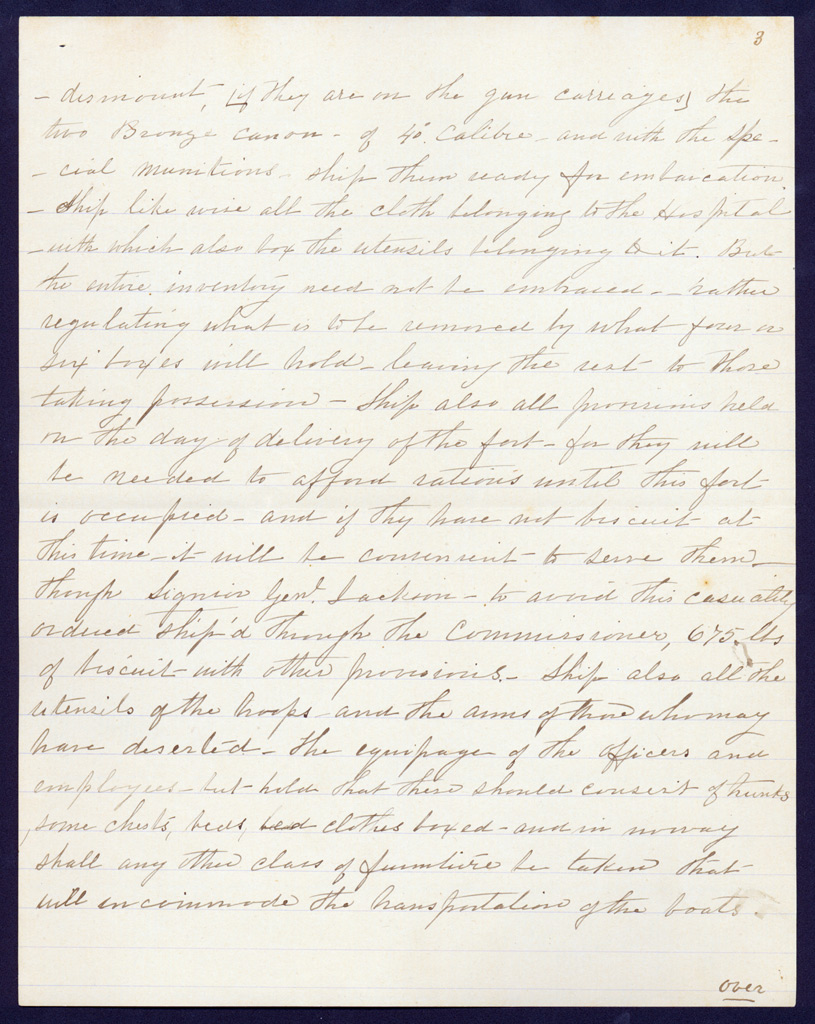 3
- dismount, [if they are on the gun carriages] the
two Bronze canon - of 4o. Calibre - and with the spe-
- cial munitions - ship them ready for embarcation.
- Ship like wise all the cloth belonging to the Hospital
- with which also box the utensils belonging to it. But
the entire inventory need not be embraced - - rather
regulating what is to be removed by what four or
six boxes will hold - leaving the rest to those
taking possession - Ship also all provisions held
on the day of delivery of the fort - for they will
be needed to afford rations until this fort
is occupied - and if they have not biscuit at
this time - it will be convenient to serve them -
though Signior Genl. Jackson - to avoid this casualty
ordered ship'd through the Commissioner, 675. lbs
of biscuit with other provisions. - Ship also all the
utensils of the troops - and the arms of those who may
have deserted - the equipage of the officers and
employees - but hold that these should consist of trunks
some chests, beds, bed clothes boxed - and in no way
shall any other class of furniture be taken that
will incommode the transportation of the boats.
over